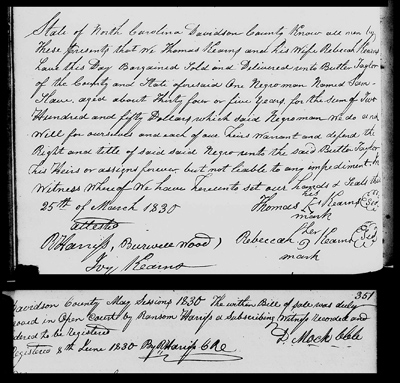 State of North Carolina Davidson County Know all men by
These presents that we Thomas Kearns and his Wife Rebecah Kearns
have this Day Bargained Sold and Delivered unto Butler Taylor
of the County and State aforesaid One Negro man Named Sam
Slave, aged about Thirty four or five Years, for the sum of Two
Hundred and fifty Dollars, which said Negro man we do and
Will for ourselves and each of our Heirs Warrant and defend the
Right and title of said said Negro unto the said Butler Taylor
his Heirs or assigns forever but not leable to any impediment In
Witness Whereof We have hereunto set our hands & Seals this
25th of March 1830
his
Thomas Kearns Seal
mark
attested
her
R Harriss, Burwell Wood) Rebeccah Kearns Seal
mark
Ivy Kearns
351
Davidson County May Sessions 1830 The within Bill of sale was duly
proved in Open Court by Ransom Harriss a Subscribing Witness recorded and
ordered to be Registered
Registered 8th June 1830 By R Harriss D. Mock Clk